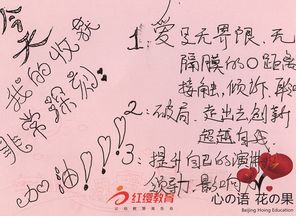 今天
我的收获
非常深刻
加油!!!
1：爱是无界限，无
隔膜的0距离
接触，倾诉，聆
2：破局，走出去创新
超越自我
3：提升自己的演讲
领导，影响力
红缨教育
心の语 花の果
Beijing Hoing Education